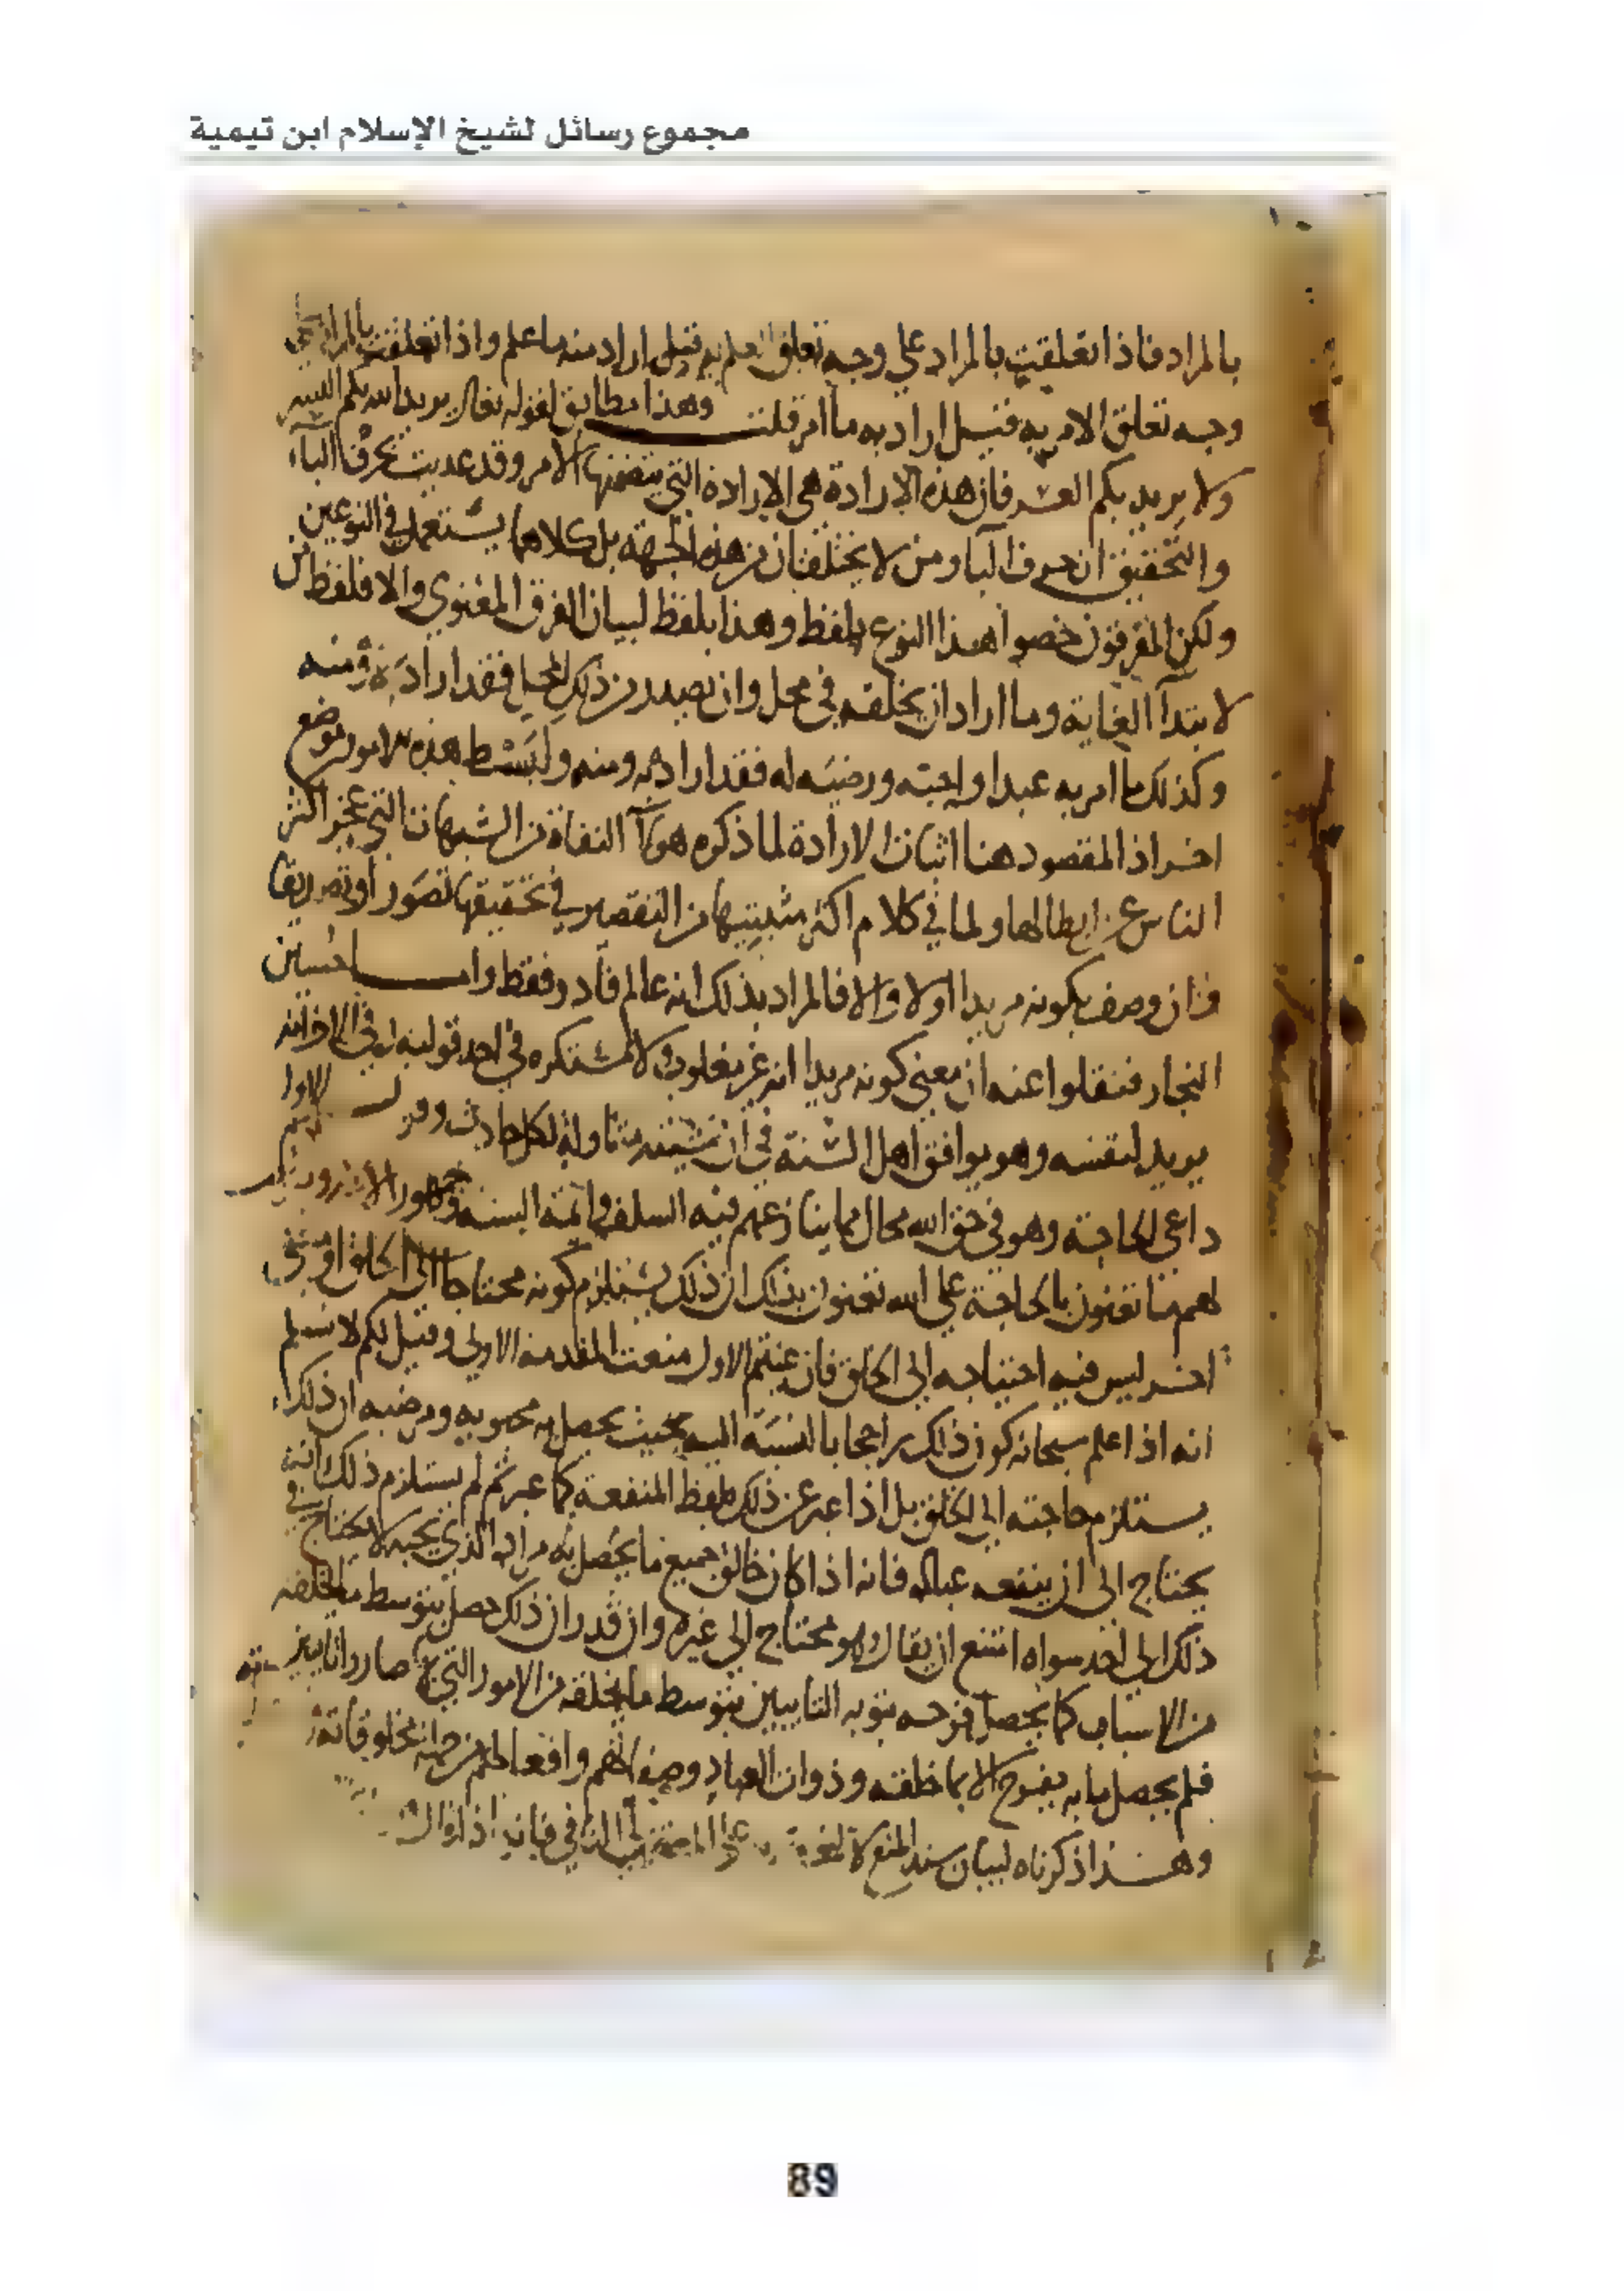 مجموع رسائل لشيخ الإسلام ابن تيمية
بالمراد فاذا تعلقت بالمراد على وجه تعلق العلم به قيل اراد منه ما علم واذا تعلقت بالمراد على
وجه تعلق الامر به فقيل اراد به ما امر قلت وهذا مطابق لقوله تعالى يريد الله بكم اليسر
ولا يريد بكم العسر فان هذه الارادة هي الارادة التي يتضمنها الامر وقد عديت بحرف الباء
والتحقيق ان حرف الباء ومن لا يختلفان من هذه الجهة بل كلاهما يستعمل في النوعين
ولكن المفرقون خصوا هذا النوع بلفظ وهذا بلفظ لبيان الفرق المعنوي والا فلفظ من
لابتدآ الغاية وما اراد ان يخلقه في محل وان يصدر من ذلك المحل فقد اراده ومنه
وكذلك ما امر به عبدا واحبه ورضيه له فقد اراد به ومنه ولبسط هذه الامور موضع
اخر اذ المقصود هنا اثبات الارادة لما ذكره هولآ النفاة من الشبهات التي عجز اكثر
الناس عن ابطالها ولما في كلام اكثر مثبتيها من التقصير في تحقيقها تصور او تصديقا
فان وصف بكونه مريدا اولا والا فالمراد بذلك انه عالم قادر فقط واما حسين
النجار فنقلوا عنه ان معنى كونه مريدا انه غير مغلوب ولا مستكره في احد قوليه وفي الاخر انه
يريد لنفسه وهو يوافق اهل السنة في ان مشيئته متناولة لكل حادث وقول الاول
داعي الحاجة وهو في حق الله محال مما ينازعهم فيه السلف وائمة السنة وجمهور
لهم ما تعنون بالحاجة على الله تعنون بذلك ان ذلك يستلزم كونه محتاجا الى الخلق او
اخر ليس فيه احتياجه الى الخلق فان عنيتم الاول منعت المقدمة الاولى وقيل لكم لا نسلم
انه اذا علم سبحانه كون ذلك راجحا بالنسبة اليه بحيث يحصل به محبوبه ومرضيه ان ذلك
يستلزم حاجته الى الخلق بل اذا عبر عن ذلك بلفظ المنفعة كما عبرتم لم يستلزم ذلك انه
يحتاج الى ان ينفعه عباده فانه اذا كان خالق جميع ما يحصل به مراده الذي يحبه لا يحتاج في
ذلك الى احد سواه امتنع ان يقال هو محتاج الى غيره وان قدر ان ذلك حصل بتوسط ما يخلقه
من الاسباب كما يحصل فرحه بتوبة التايبين بتوسط ما يخلقه من الامور التي بها صاروا تايبين
فلم يحصل ما به يفرح الا بما خلقه وذوات العباد وصفاتهم وافعالهم من جملة مخلوقاته
وهذا ذكرناه لبيان سند المنع لا
89